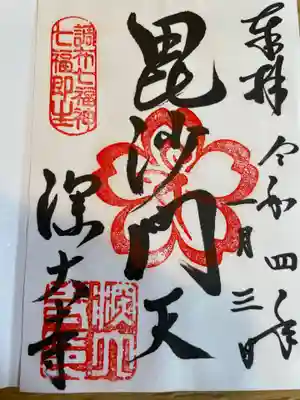 奉拝 令和四年
一月三日
毘沙門天
深大寺
調布七福神
七福即生